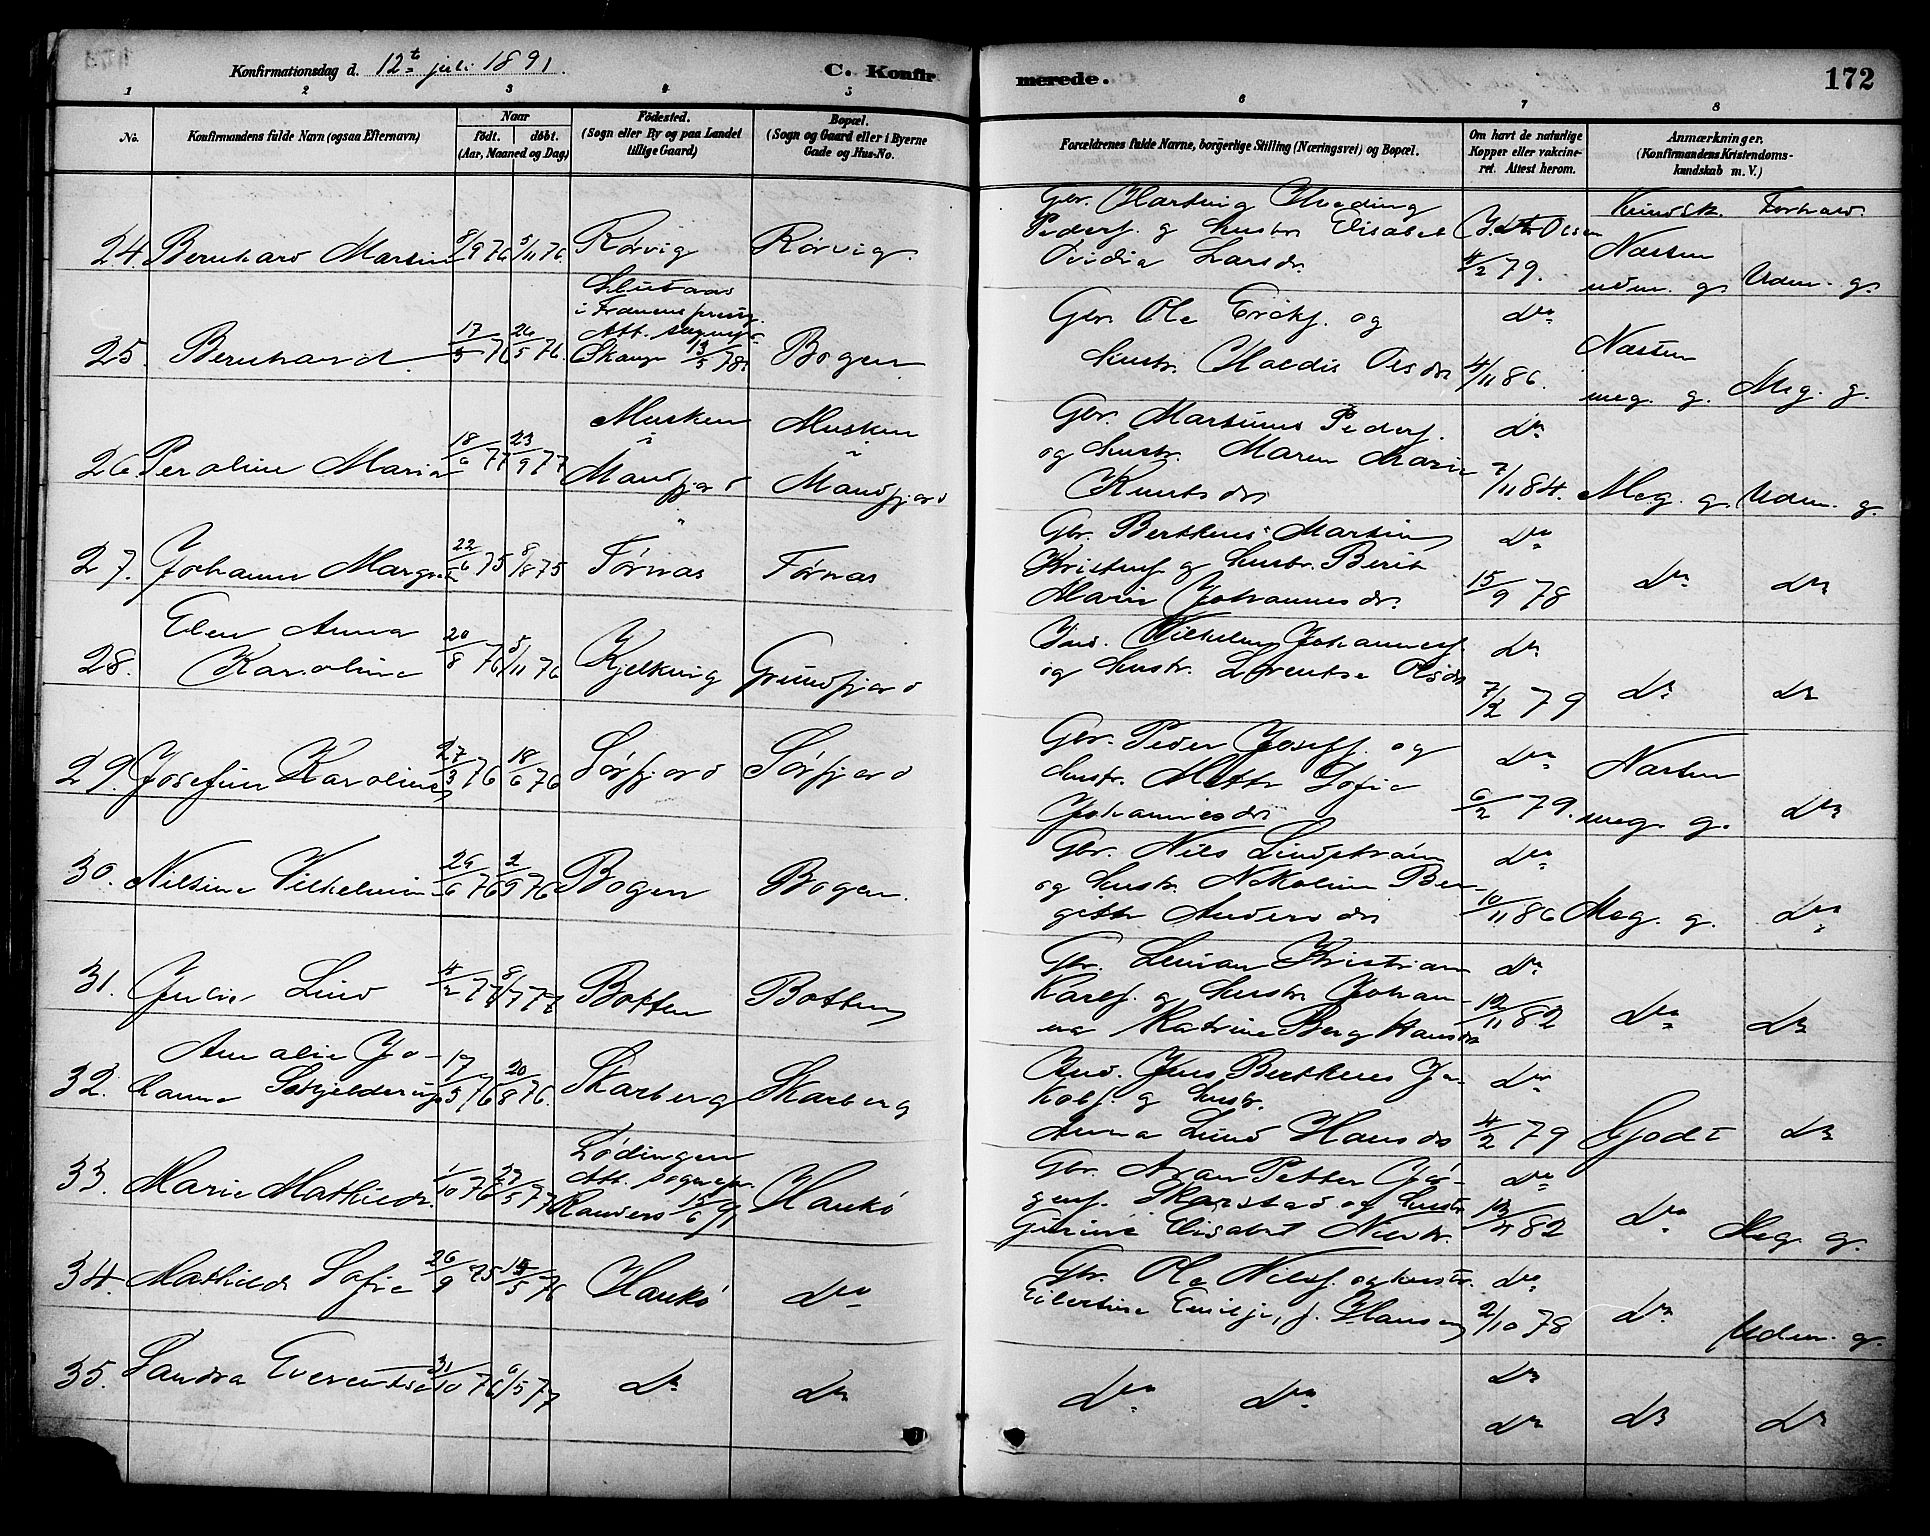 Konfirmationsdag d. 12te juli 1891.
C. Konfirmerede.
172
1 2 3 4 5 6 7 8
No.
Konfirmandens fulde Navn (ogsaa Efternavn)
Naar
født. døbt.
(Aar, Maaned og Dag)
Fødested.
(Sogn eller By og paa Landet
tillige Gaard)
Bopæl.
(Sogn og Gaard eller i Byerne
Gade og Hus-No.
Forældrenes fulde Navne, borgerlige Stilling (Næringsvei) og Bopæl.
Om havt de naturlige
Kopper eller vakcine-
ret. Attest herom.
Anmærkninger.
(Konfirmandens Kristendoms-
kundskab m. V.)
Kundsk. Forhold.
24. Bernhard Martin 8/9 76 5/11 76. Rørvig Rørvig.
Gbr. Hartvig Hveding
Peders. og hustr. Elisabet
Ovidia Larsdr.
Olsen
4/2 79.
Næsten
udm. g. Udm. g.
25. Bernhard 17/5 76 26/5 76.
i
Att. sognepr.
Skauge 13/5 78
Bogen
Gbr. Ole Eriks. og
hustr. Haldis Olsdr
do
4/11 86.
Næsten
meg. g. Meg. g.
26. Peroline Maria 18/6 77 23/9 77
Musken
i
Mandfjord
Musken
i
Mandfjord
Gbr. Martinus Peders.
og hustr. Maren Marie
Knutsdr
do
7/11 84. Meg. g. Udm. g.
27. Johanne Margrete 22/6 75 8/8 75 Tørnæs Tørnæs
Gbr. Bertheus Martin
Kristens. og hustr. Berit
Marie Johannesdr.
do
15/9 78 do do
28. Elen Anna
Karoline
20/8 76 5/11 76 Kjelkvig Grundfjord
Ind. Vilhelm Johanness.
og hustr. Lorentse Olsdr
do
7/2 79 do do
29. Josefine Karoline 27/3 76 18/6 76 Sørfjord Sørfjord
Gbr. Peder Josefs. og
hustr. Mette Sofie
Johannesdr
do
6/2 79.
Næsten
meg. g. do
30. Nilsine Vilhelmine 29/6 76 2/9 76 Bogen Bogen.
Gbr. Nils Lindstrøm
og hustr. Nikoline Ber-
gitte Andersdr
do
10/11 86 Meg. g. do
31. Julie Lind 4/2 77 8/7 77 Botten Botten
Gbr. Kristian
Karls. og hustr. Johan-
na Katrine Berg Hansdr
do
12/11 82 do do
32. Amalie Jo-
hanne Schjelderup
17/5 76 20/8 76. Skarberg Skarberg
Ind. Jens Bertheus Ja-
kobs. og hustr.
Anna Lund Hansdr
do
4/2 79 Godt do
33. Marie Mathilde 1/10 76 27/5 77
Lødingen
Att. sognepr.
Randers 15/6 91
Haukø
Gbr. Aron Petter Jør-
gens. Skarstad og hustr
Gurine Elisabet Nilsdr.
do
12/4 82 do Meg. g.
34. Mathilde Sofie 26/9 75 15/5 76 Haukø do
Gbr. Ole Nils. og hustr.
Eilertine Emilje, f. Hansen
do
2/10 78 do Udm. g.
35. Sandra Everentse 31/10 76 6/5 77 do do
do do
do
do do do